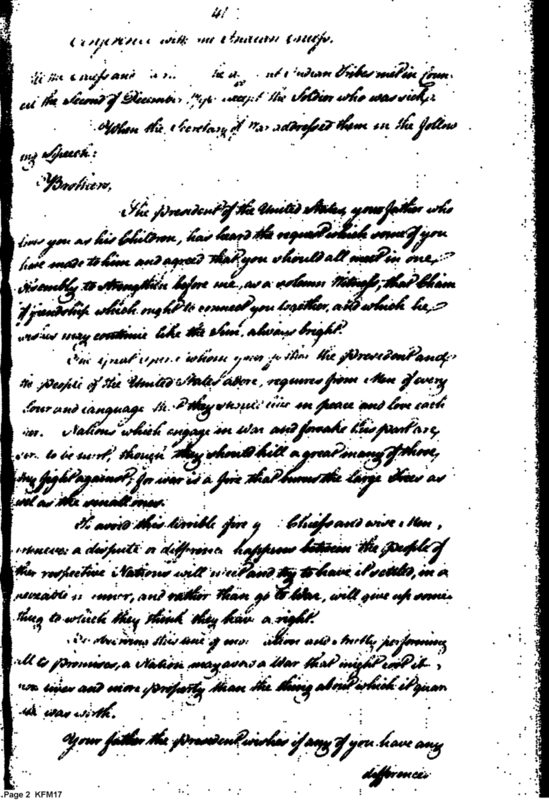 41
Conference with the Indian Chiefs.
the Chiefs and Indian Tribes met in Coun-
cil the Second of December except the Soldier who was sick,
When the Secretary of War addressed them in the follow
ing Speech:
Brothers,
The president of the United States, your father who
loves you as his Children, has heard the request which some of you
have made to him and agreed that you should all meet in one,
Assembly to strengthen before me, as a solemn Witness, that Chain
of friendship which ought to connect you together, and which he,
wishes may continue like the Sun, always bright.
The great spirit whom your father the president and
the people of the United States adore, requires from Men of every
Colour and language that they should live in peace and love each
other. Nations which engage in War and forsake this part are,
to be hurt, though they should kill a great many of those,
they fight against; for war is a fire that burns the large Trees as
well as the small ones.
To avoid this terrible fire Chiefs and wise Men,
whenever a dispute or difference happens between the people of
their respective Nations will meet and try to have it settled, in a
peaceable manner, and rather than go to War, will give up some
thing to which they think they have a right.
By observing this line of and strictly performing
all its promises, a Nation may avoid a War that might cost it
more lives and more property than the thing about which it quar
was worth.
Your father the president wishes if any of you have any
difference
Page 2 KFM17